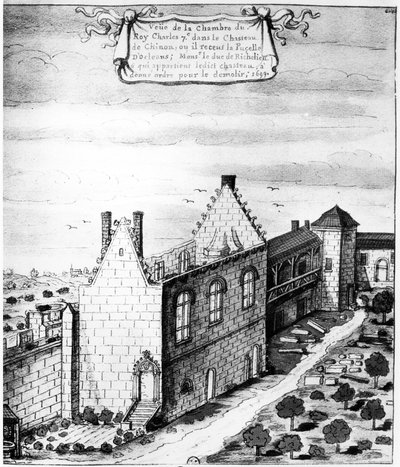 Veüe de la Chambre du
Roy Charles 7.e dans le Chasteau
de Chinon, ou il receut la Pucelle
D'Orleans; Mons.r le duc de Richelieu
a qui appartient ledict chasteau, a
donné ordre pour le demolir, 1699.